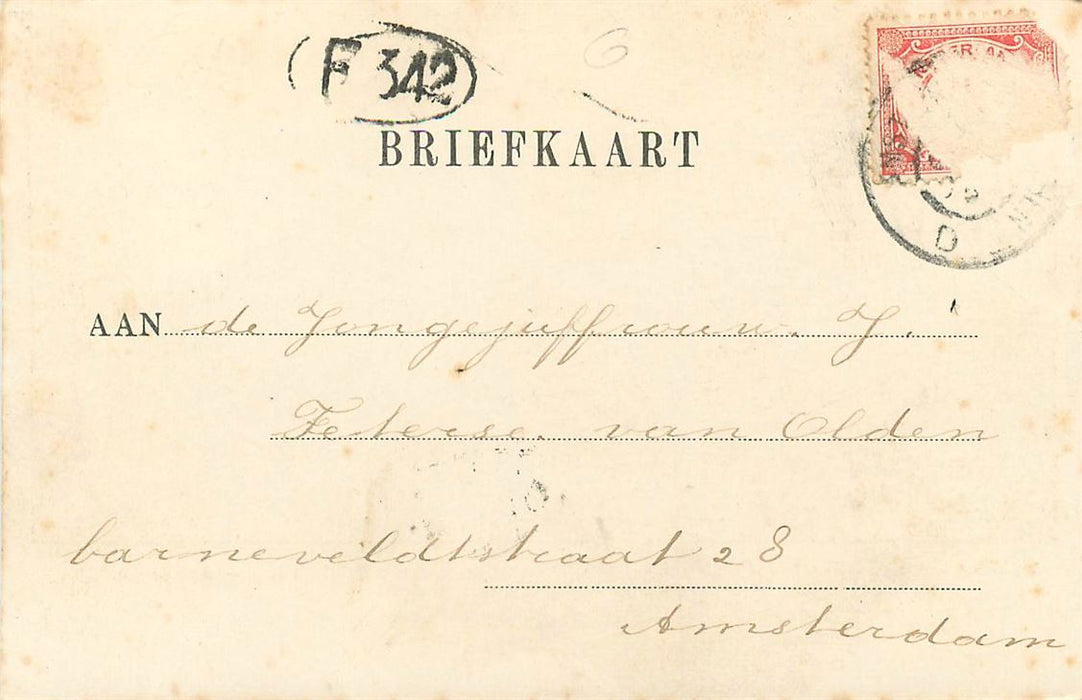 F 342
6
BRIEFKAART
D
AAN de Jongejuffrouw. J.
Feterse. van Olden
barneveldtstraat 28
Amsterdam